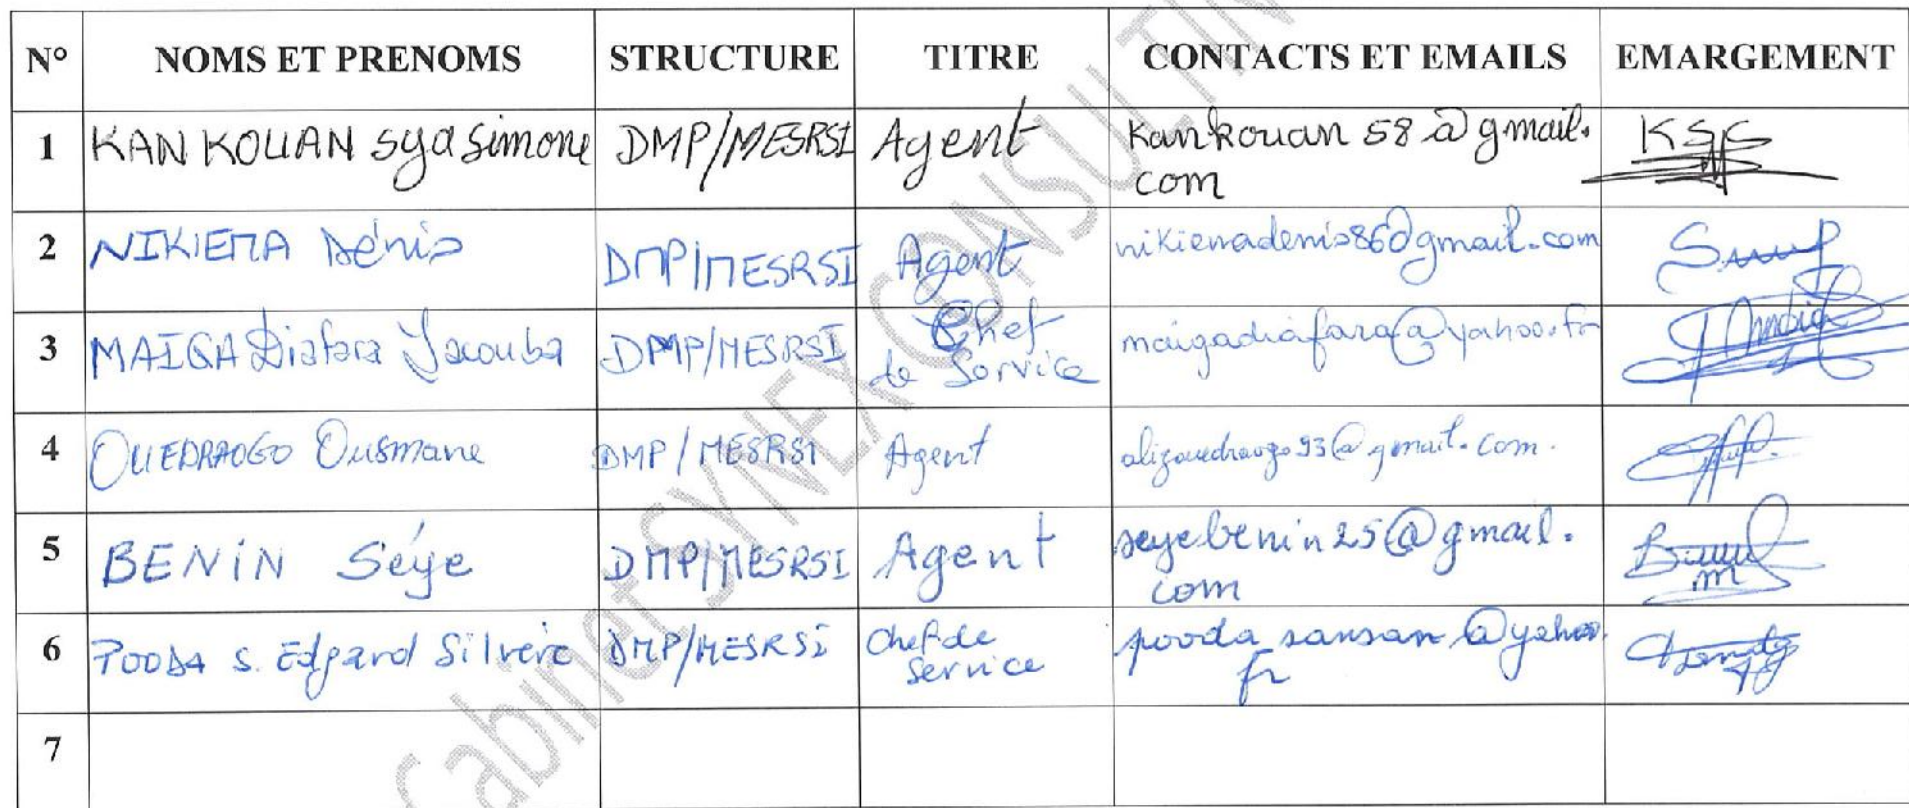 N° NOMS ET PRENOMS STRUCTURE TITRE CONTACTS ET EMAILS EMARGEMENT
1 KANKOUAN Sya Simone DMP/MESRSI Agent Kankouan58@gmail.
com KSS
2 NIKIEMA Dénis DMP/MESRSI Agent nikiemadenis86@gmail.com
3 MAIGA Diafara Yacouba DMP/MESRSI Chef
de Service maigadiafara@yahoo.fr
4 OUEDRAOGO Ousmane DMP/MESRSI Agent alizouedraogo93@gmail.com.
5 BENIN Séye DMP/MESRSI Agent seyebenin25@gmail.
com
6 POODA S. Edgard Silvère DMP/MESRSI Chef de
Service pooda_sansan@yahoo.
fr
7
Cabinet SYNEX CONSULTIN